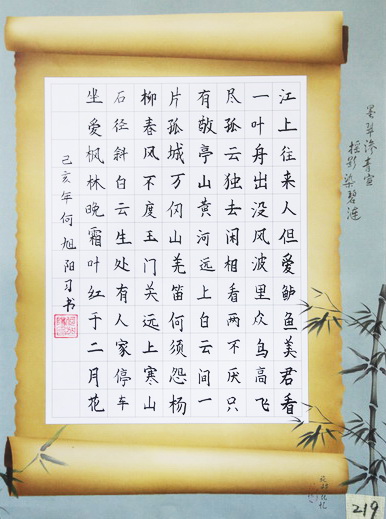 墨翠添青宣
摇影染碧涟
江上往来人但爱鲈鱼美君看
一叶舟出没风波里众鸟高飞
尽孤云独去闲相看两不厌只
有敬亭山黄河远上白云间一
片孤城万仞山羌笛何须怨杨
柳春风不度玉门关远上寒山
石径斜白云生处有人家停车
坐爱枫林晚霜叶红于二月花
己亥年何旭阳习书
219